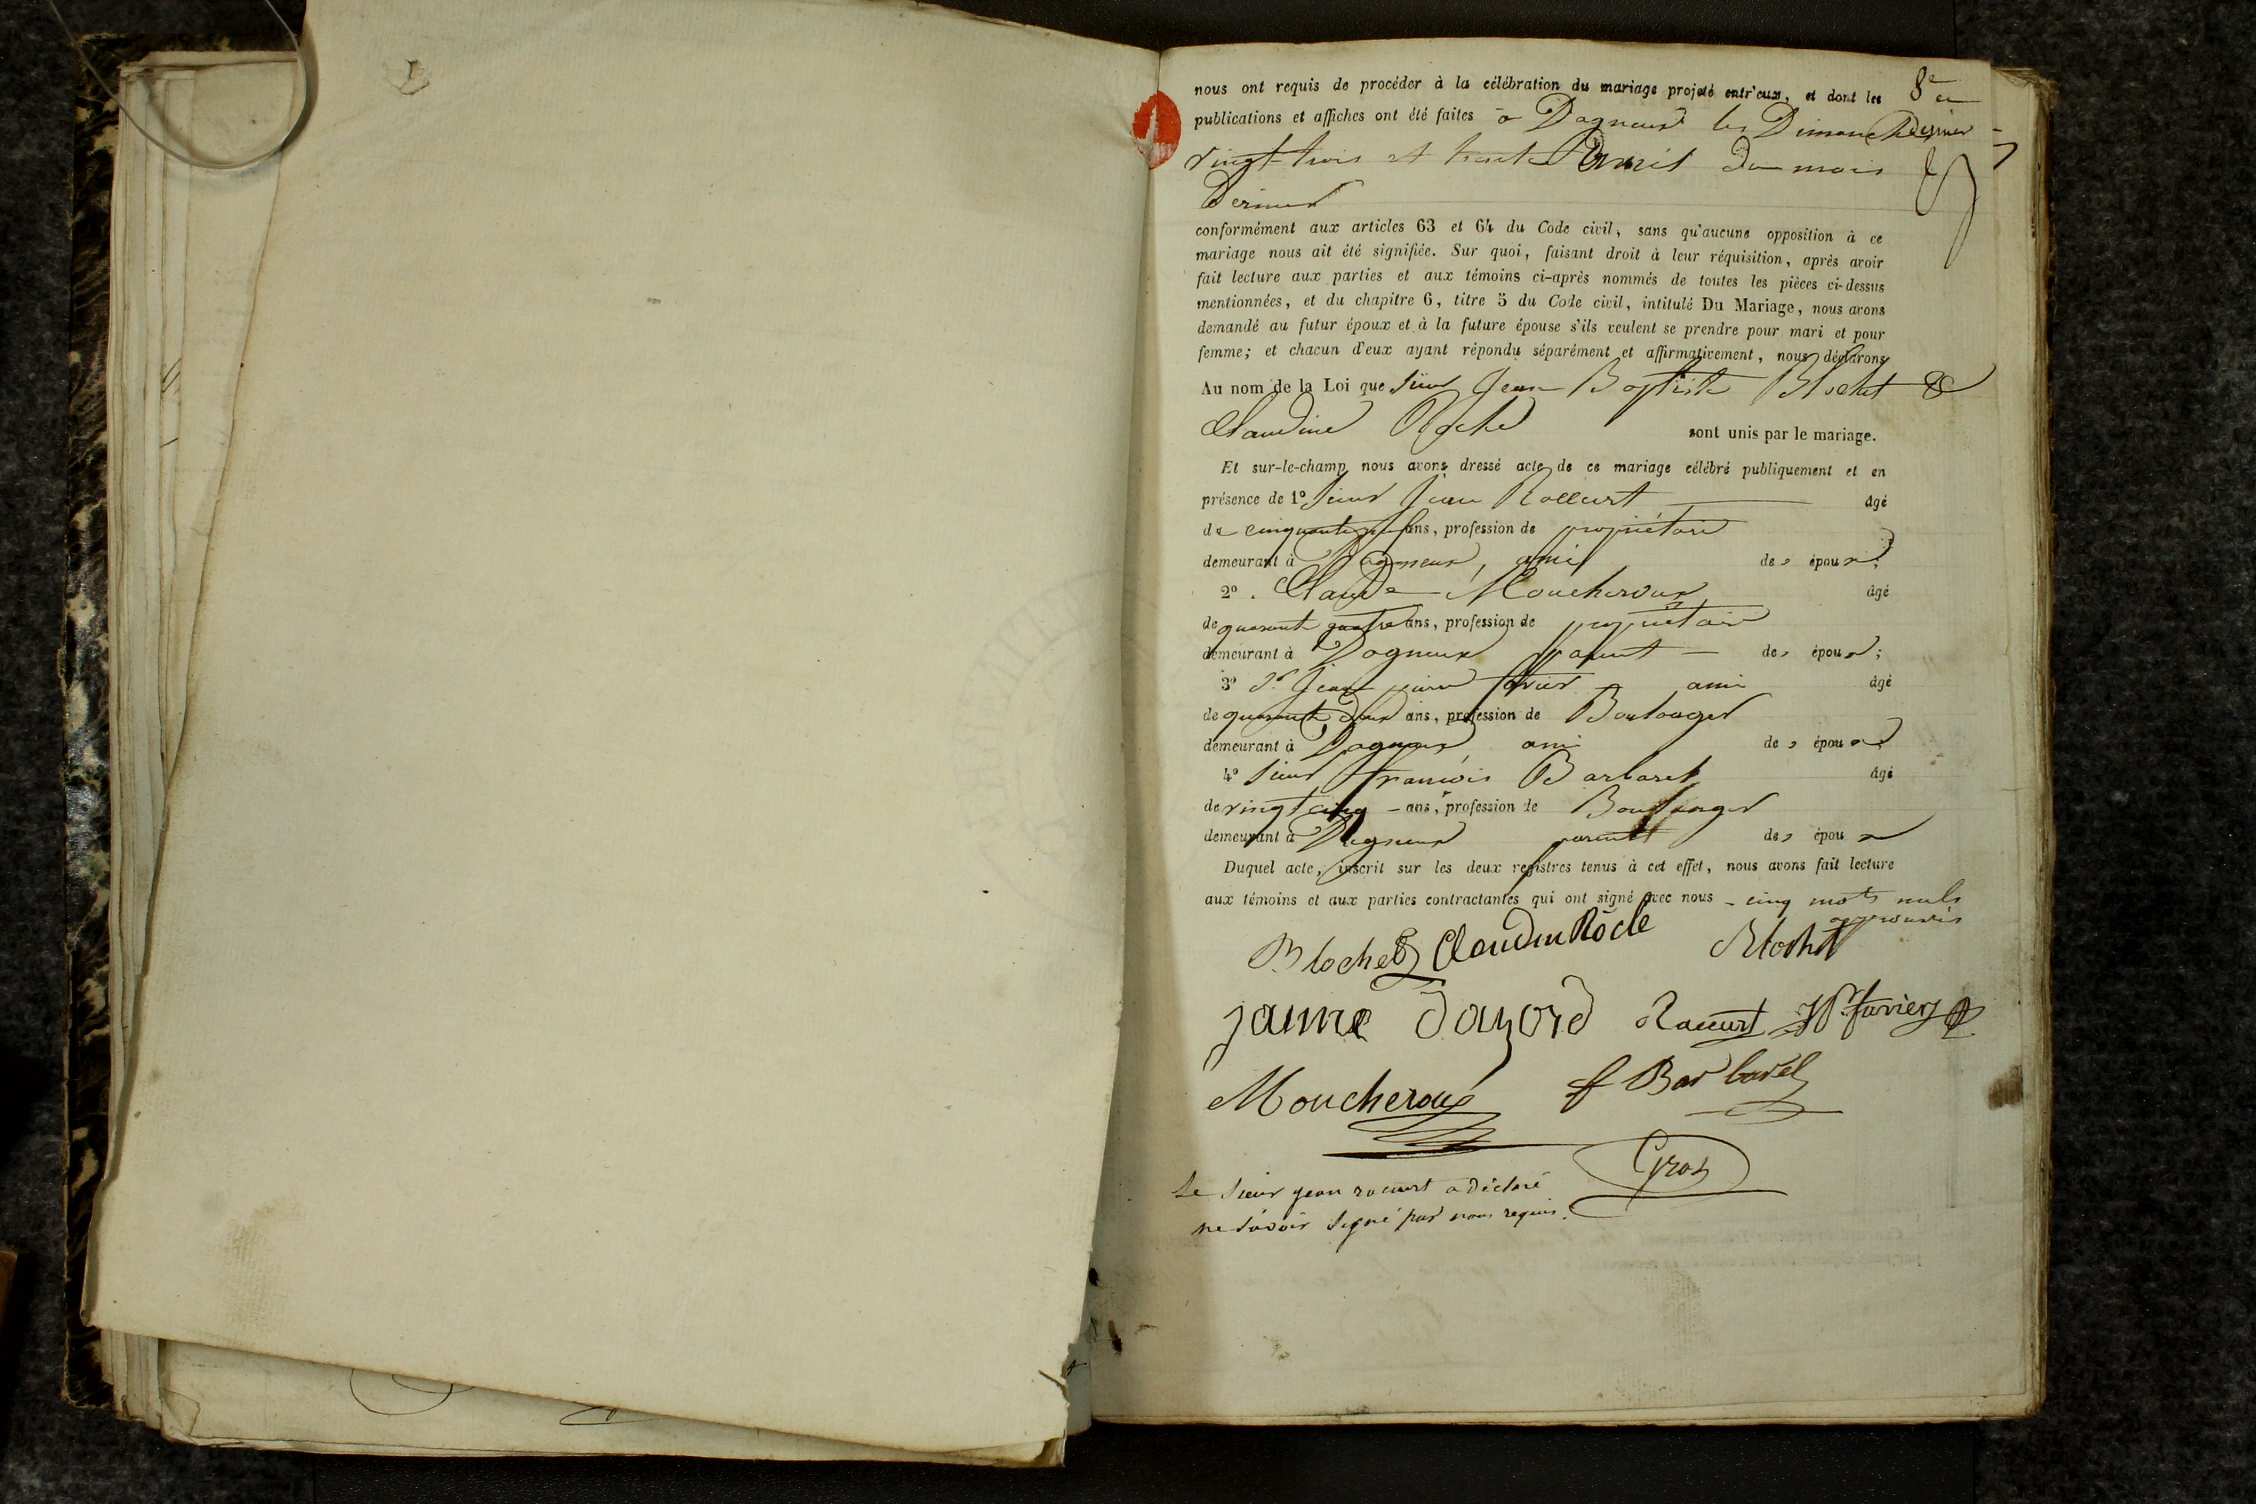 8e
nous ont requis de procéder à la célébration du mariage projeté entr'eux, et dont les
publications et affiches ont été faites à Dagneux les Dimanche
vingt trois et trente Avril du mois
Dernier
conformément aux articles 63 et 64 du Code civil, sans qu'aucune opposition à ce
mariage nous ait été signifiée. Sur quoi, faisant droit à leur réquisition, après avoir
fait lecture aux parties et aux témoins ci-après nommés de toutes les pièces ci-dessus
mentionnées, et du chapitre 6, titre 5 du Code civil, intitulé Du Mariage, nous avons
demandé au futur époux et à la future épouse s'ils veulent se prendre pour mari et pour
femme; et chacun d'eux ayant répondu séparément et affirmativement, nous déclarons
Au nom de la Loi que sieur Jean Baptiste Blochet &
Claudine Roche sont unis par le mariage.
Et sur-le-champ nous avons dressé acte de ce mariage célébré publiquement et en
présence de 1º Sieur Jean âgé
de ans, profession de propriétaire
demeurant à Dagneux, ami des époux;
2º. Claude Moucheroux âgé
de quarante quatre ans, profession de propriétaire
demeurant à Dagneux parent des époux;
3º Sr Jean pierre favier ami âgé
de quarante deux ans, profession de Boulanger
demeurant à Dagneux ami des époux
4º Sieur françois Barbaret âgé
de vingt cinq ans, profession de Boulanger
demeurant à Dagneux parent des époux
Duquel acte, inscrit sur les deux registres tenus à cet effet, nous avons fait lecture
aux témoins et aux parties contractantes qui ont signé avec nous - cinq mots nuls
approuvés
Blochet Claudin Roche Blochet
jaime favier
Moucheroux f Barbaret
Gros
Le sieur jean racurt a déclaré
ne savoir signé par nous requis.